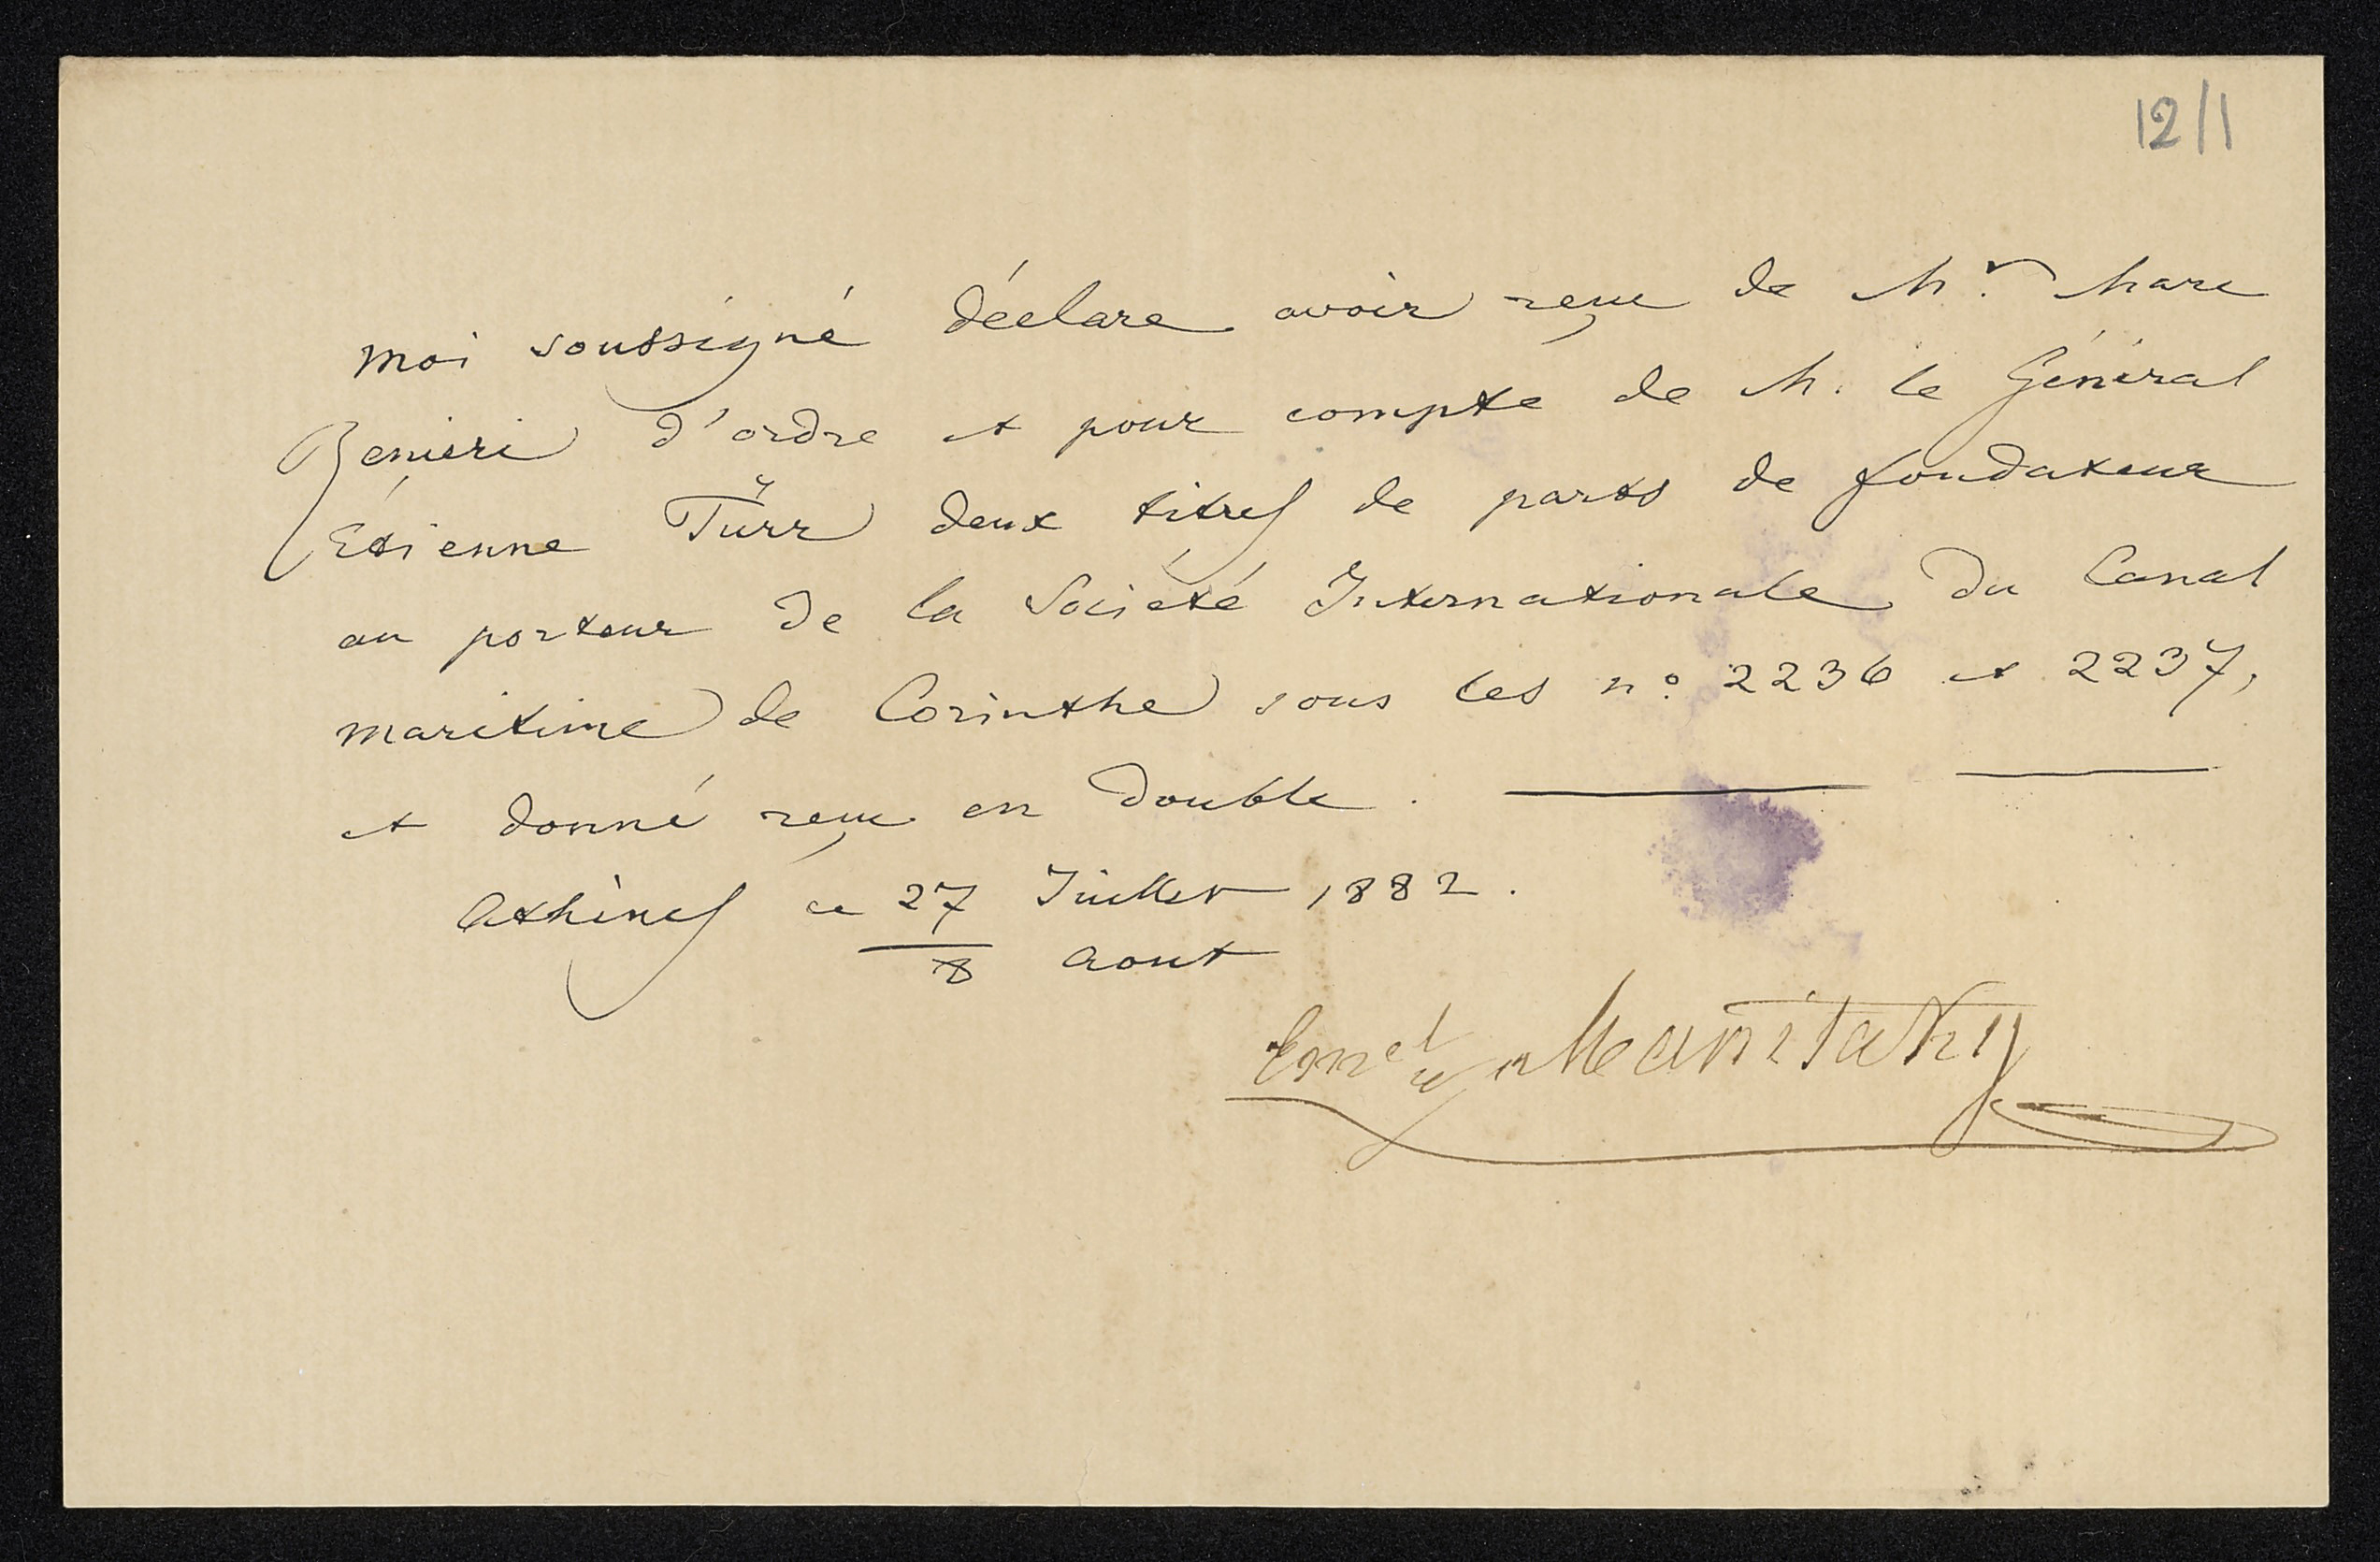 12/1
Moi soussigné déclare avoir reçu de Mr. Marc
Renieri d'ordre et pour compte de M. le Général
Étienne Türr deux titres de parts de fondateur
au porteur de la Société Internationale du Canal
maritime de Corinthe sous les no. 2236 et 2237,
et donné reçu en double.
Athènes ce 27 Juillet 1882.
8 Aout
Emel Manitaky